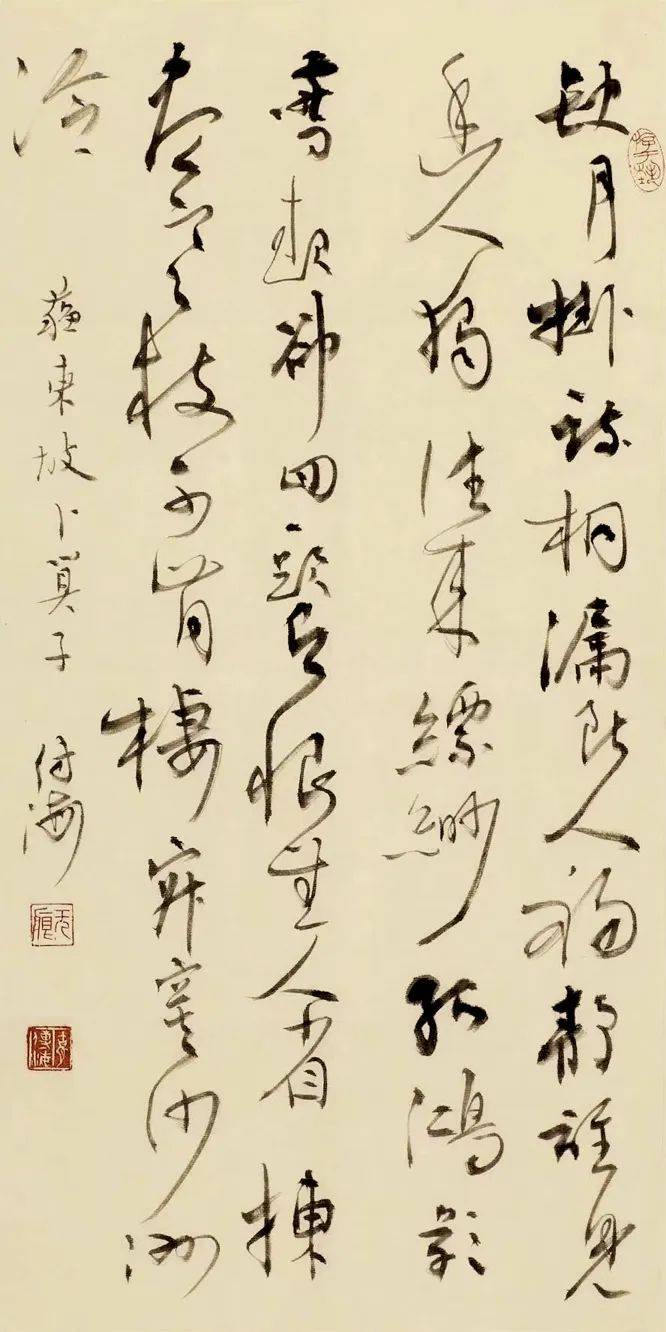 缺月掛疏桐漏断人初靜誰見
幽人獨往来縹緲孤鴻影
驚起卻回頭有恨無人省揀
盡寒枝不肯棲寂寞沙洲
冷
蘇東坡卜算子 付海